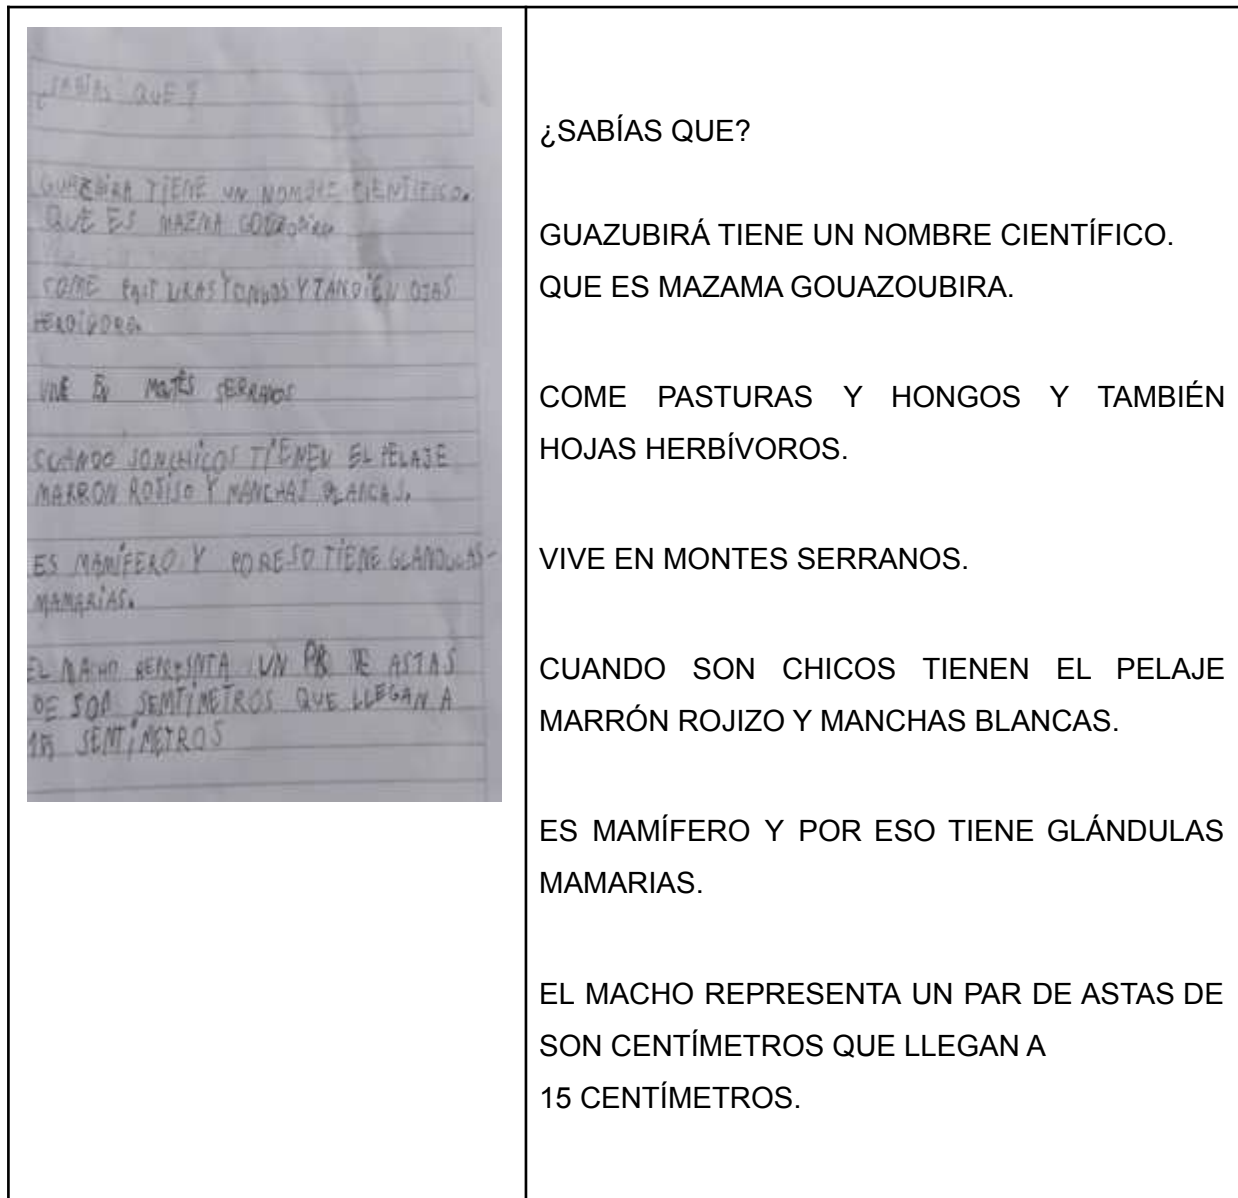 ¿SABÍAS QUE?
GUAZBIRA TIENE UN NOMBRE CIENTIFICO.
QUE ES MAZMA
COME PASTURAS Y TANDIÉN OJAS
HERDÍVORO.
VIVE EN MONTES SERRANOS
CUANDO SON CHICOS TIENEN EL PELAJE
MARRON ROJISO Y MANCHAS BLANCAS.
ES MAMÍFERO Y POR ESO TIENE GLANDULAS
MAMARIAS.
EL MACHO UN PAR DE ASTAS
DE SON SEMTIMETROS QUE LLEGAN A
15 SENTÍMETROS
¿SABÍAS QUE?
GUAZUBIRÁ TIENE UN NOMBRE CIENTÍFICO.
QUE ES MAZAMA GOUAZOUBIRA.
COME PASTURAS Y HONGOS Y TAMBIÉN
HOJAS HERBÍVOROS.
VIVE EN MONTES SERRANOS.
CUANDO SON CHICOS TIENEN EL PELAJE
MARRÓN ROJIZO Y MANCHAS BLANCAS.
ES MAMÍFERO Y POR ESO TIENE GLÁNDULAS
MAMARIAS.
EL MACHO REPRESENTA UN PAR DE ASTAS DE
SON CENTÍMETROS QUE LLEGAN A
15 CENTÍMETROS.